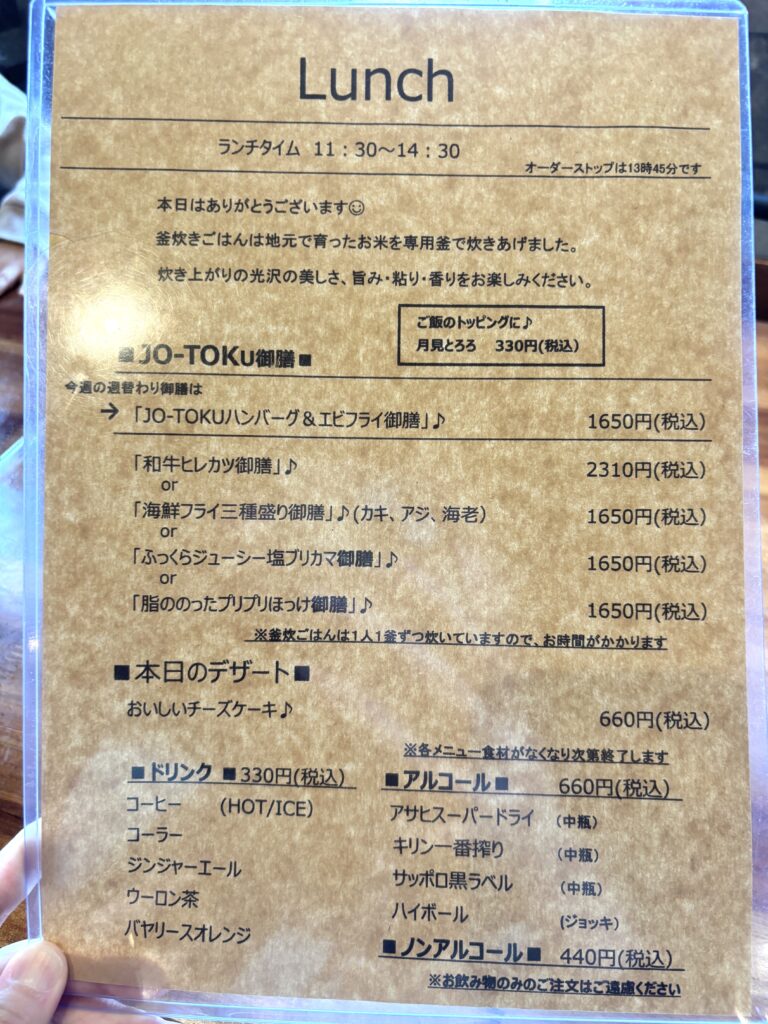 Lunch
ランチタイム 11:30～14:30
オーダーストップは13時45分です
本日はありがとうございます☺
釜炊きごはんは地元で育ったお米を専用釜で炊きあげました。
炊き上がりの光沢の美しさ、旨み・粘り・香りをお楽しみください。
ご飯のトッピングに♪
月見とろろ 330円(税込)
■JO-TOKU御膳■
今週の週替わり御膳は
→ 「JO-TOKUハンバーグ＆エビフライ御膳」♪ 1650円(税込)
「和牛ヒレカツ御膳」♪ 2310円(税込)
or
「海鮮フライ三種盛り御膳」♪(カキ、アジ、海老) 1650円(税込)
or
「ふっくらジューシー塩ブリカマ御膳」♪ 1650円(税込)
or
「脂ののったプリプリほっけ御膳」♪ 1650円(税込)
※釜炊ごはんは1人1釜ずつ炊いていますので、お時間がかかります
■本日のデザート■
おいしいチーズケーキ♪ 660円(税込)
※各メニュー食材がなくなり次第終了します
■ドリンク ■330円(税込)
コーヒー (HOT/ICE)
コーラー
ジンジャーエール
ウーロン茶
バヤリースオレンジ
■アルコール■ 660円(税込)
アサヒスーパードライ (中瓶)
キリン一番搾り (中瓶)
サッポロ黒ラベル (中瓶)
ハイボール (ジョッキ)
■ノンアルコール■ 440円(税込)
※お飲み物のみのご注文はご遠慮ください